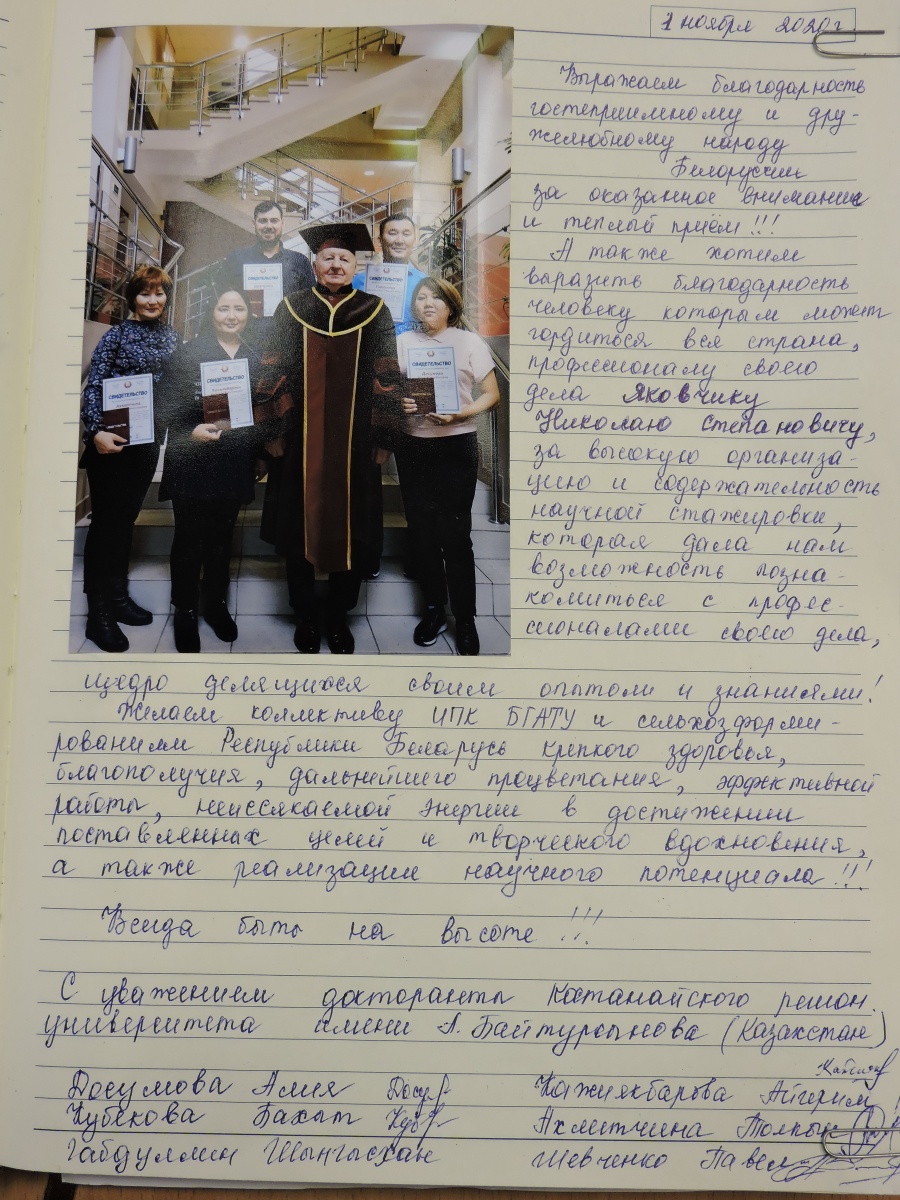 1 ноября 2020 г.
Выражаем благодарность
гостеприимному и дру-
желюбному народу
Белоруссии
за оказанное внимание
и теплый приём!!!
А также хотим
выразить благодарность
человеку которым может
гордиться вся страна,
профессионалу своего
дела Яковчику
Николаю Степановичу,
за высокую организа-
цию и содержательность
научной стажировки,
которая дала нам
возможность позна-
комиться с профес-
сионалами своего дела,
щедро делящихся своим опытом и знаниями!
Желаем коллективу ИПК БГАТУ и сельхозформи-
рованиям Республики Беларусь крепкого здоровья,
благополучия, дальнейшего процветания, эффективной
работы, неиссякаемой энергии в достижении
поставленных целей и творческого вдохновения,
а также реализации научного потенциала!!!
Всегда быть на высоте!!!
С уважением докторанты Костанайского регион.
университета имени А. Байтурсынова (Казахстан)
Досумова Алия Кажиякбарова Айгерим
Кубекова Бахыт Ахметчина Толкын
Габдуллин Шынгысхан Шевченко Павел
СВИДЕТЕЛЬСТВО
СВИДЕТЕЛЬСТВО
СВИДЕТЕЛЬСТВО
СВИДЕТЕЛЬСТВО
СВИДЕТЕЛЬСТВО